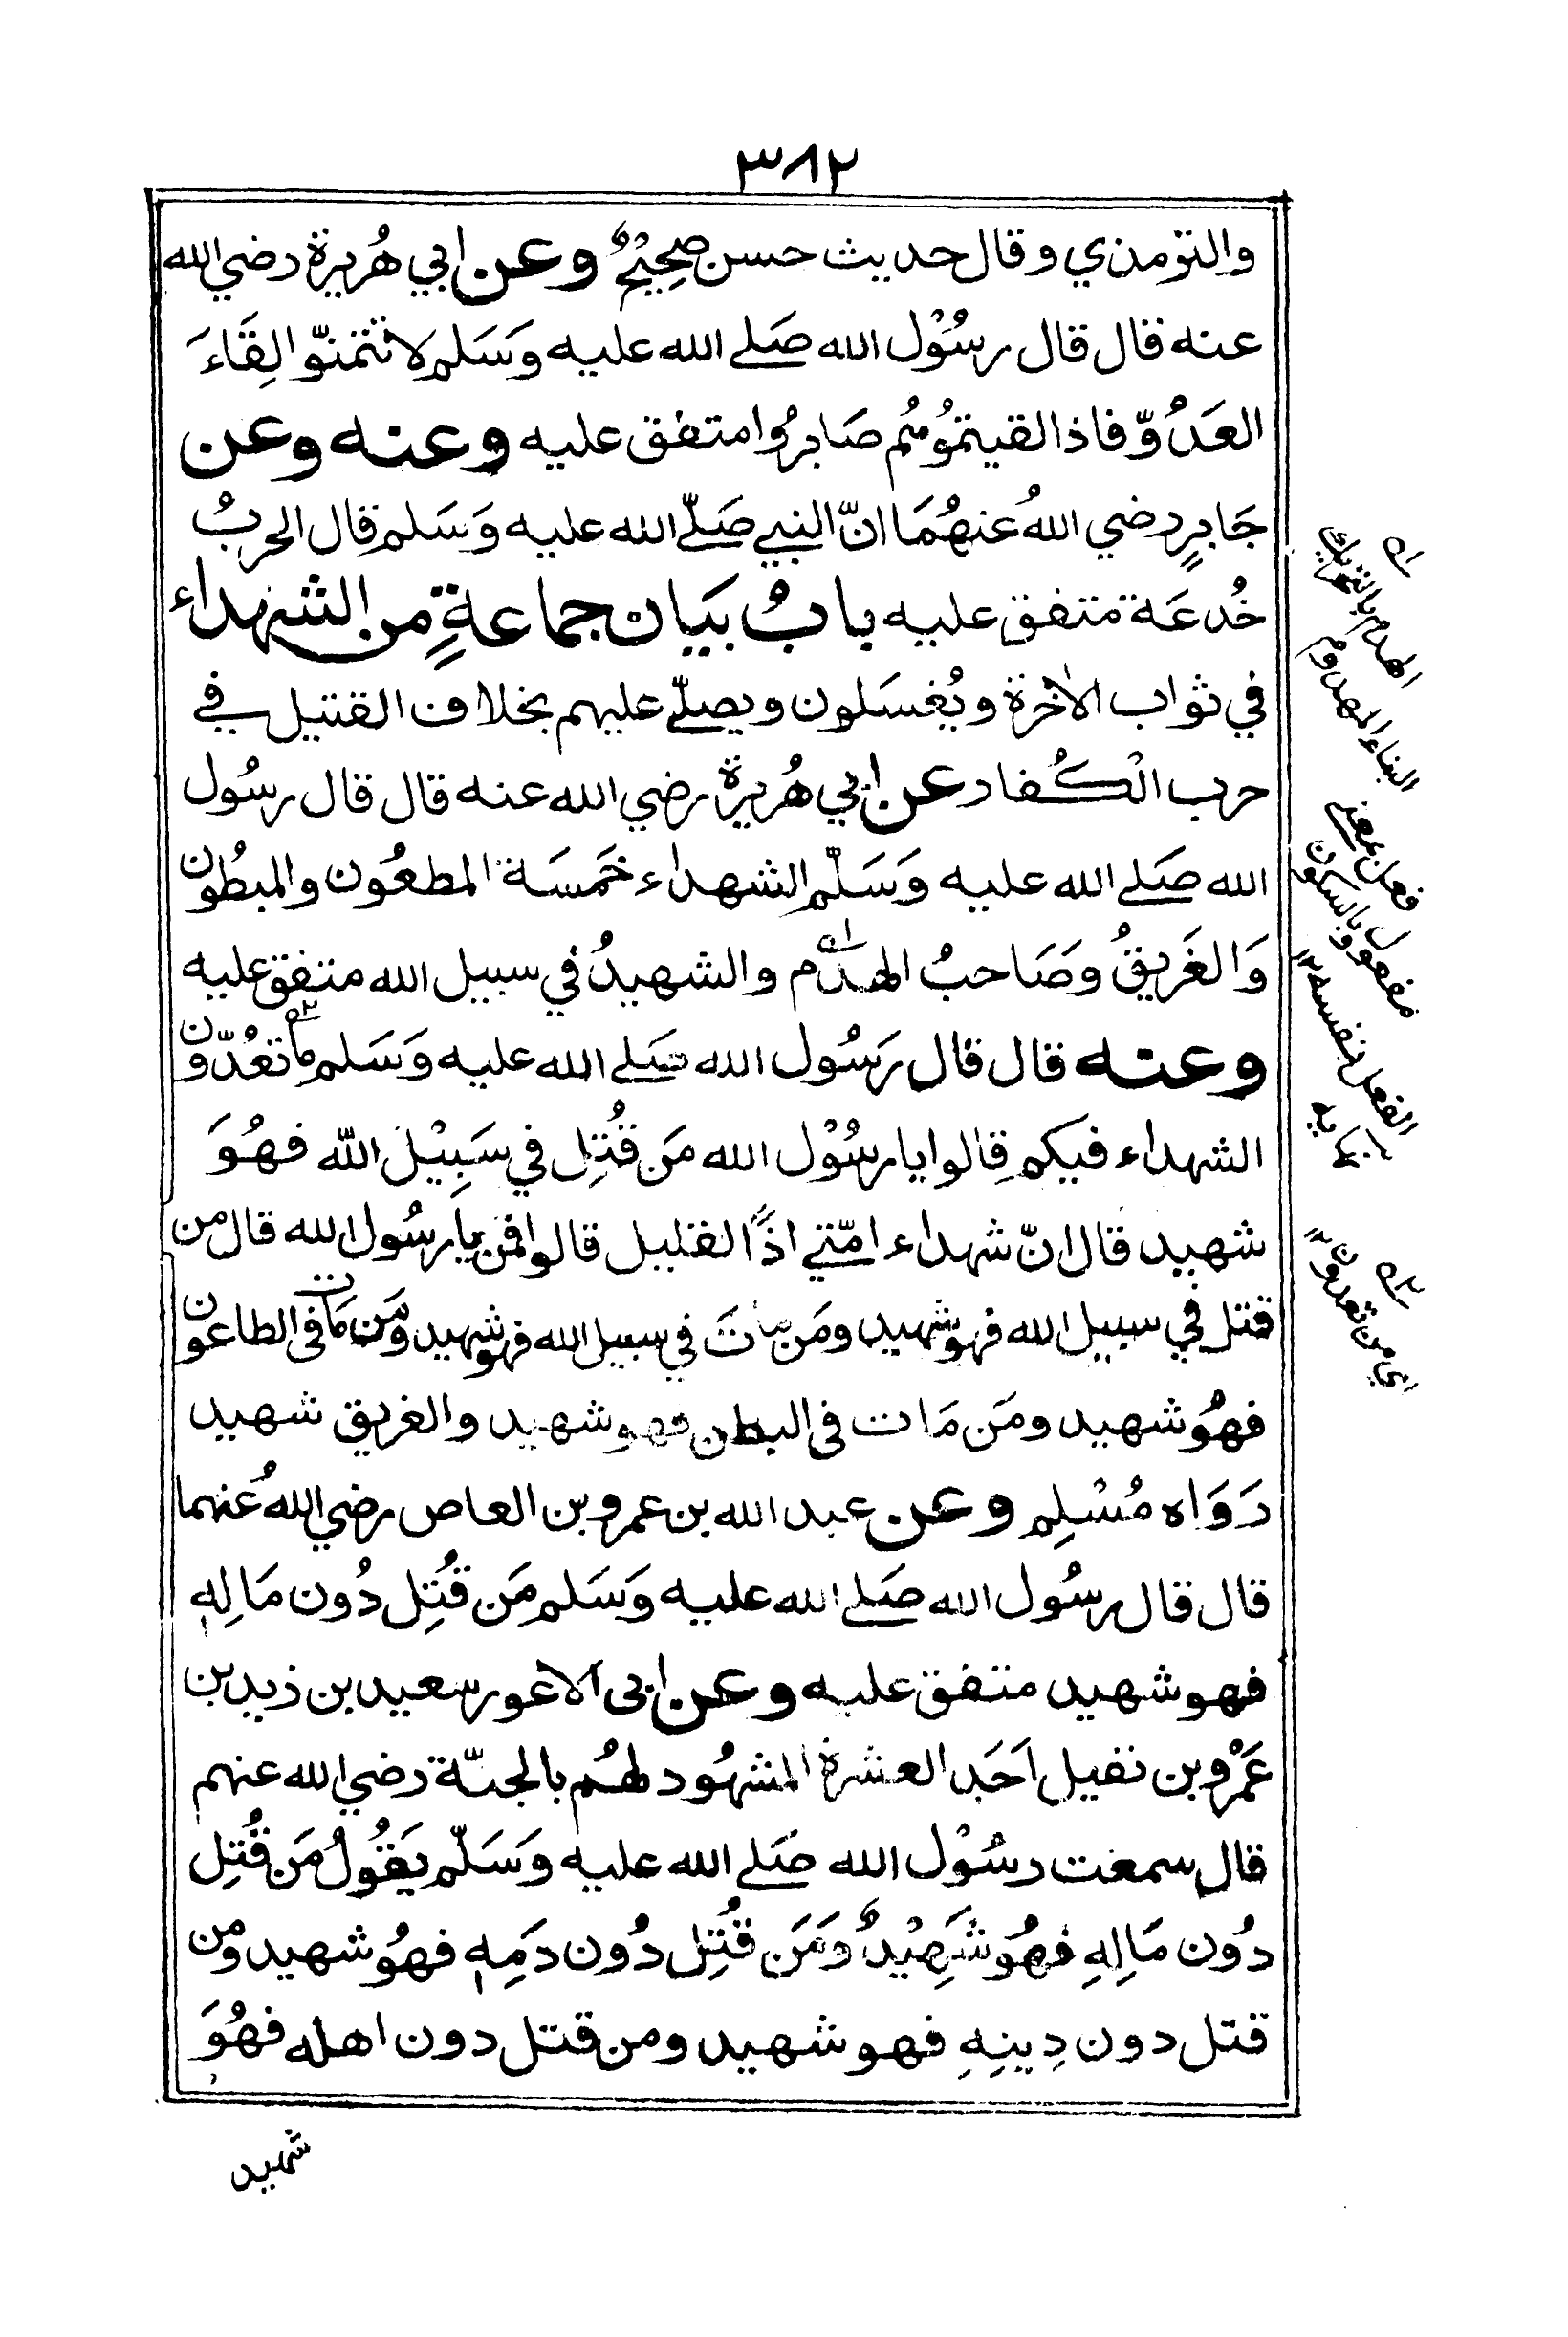 ٣٨٢
والترمذي وقال حديث حسن صَحِيْحٌ وعن ابي هُريرة رضي الله
عنه قال قال رسُوْل الله صَلے الله عليه وَسَلم لا تتمنّوا لِقَاءَ
العَدُوّ فاذا لقيتموُهُم صَابرُوا متفق عليه وعنه وعن
جَابرٍ رضي اللهُ عنهُمَا انّ النبي صَلّے الله عليه وَسَلم قال الحربُ
خُدعَة متفق عليه بابُ بَيَان جماعةٍ من الشهداء
في ثواب الاٰخرة ويُغسَلون ويصلّے عليهم بخلاف القتيل في
حرب الْكُفار عن ابي هُريرة رضي الله عنه قال قال رسُول
الله صَلے الله عليه وَسَلّم الشهداء خَمسَة المطعُون والمبطُون
وَالغَريقُ وصَاحبُ الهدَم والشهيدُ في سبيل الله متفق عليه
وعنه قال قال رَسُول الله صَلے الله عليه وَسَلم مَا تعُدّون
الشهداء فيكم قالوا يا رسُوْل الله مَن قُتِل في سَبِيْل الله فهُوَ
شهيد قال انّ شهداء امّتي اذًا لقليل قالوا فمن يا رسُول الله قال من
قتل في سبيل الله فهو شهيد ومَن مات في سبيل الله فهو شهيد ومَن مَات فى الطاعون
فهُو شهيد ومَن مَات فى البطن فهو شهيد والغريق شهيد
رَوَاه مُسْلِم وعن عبد الله بن عمرو بن العاص رضي اللهُ عنهما
قال قال رسُول الله صَلے الله عليه وَسَلم مَن قُتِل دُون مَالِهٖ
فهو شهيد متفق عليه وعن ابى الاعور سعيد بن زيد بن
عَمْرو بن نفيل اَحَد العشرة المشهُود لهُم بالجنّة رضي الله عنهم
قال سمعت رسُوْل الله صَلے الله عليه وَسَلّم يَقُولُ مَن قُتِل
دُون مَالِهِ فهُو شَهِيْدٌ وَمَن قُتِل دُون دَمِهٖ فهُو شهيد ومن
قتل دون دِينِهِ فهو شهيد ومن قتل دون اهله فهُوَ
شهيد
ا۵ الهدم بالتحريك
البناء المهدوم
فعل بمعنے
مفعول وبالسكون
الفعل نفسه ١٢
نهايه
٢۵ اى من تعدون ١٢